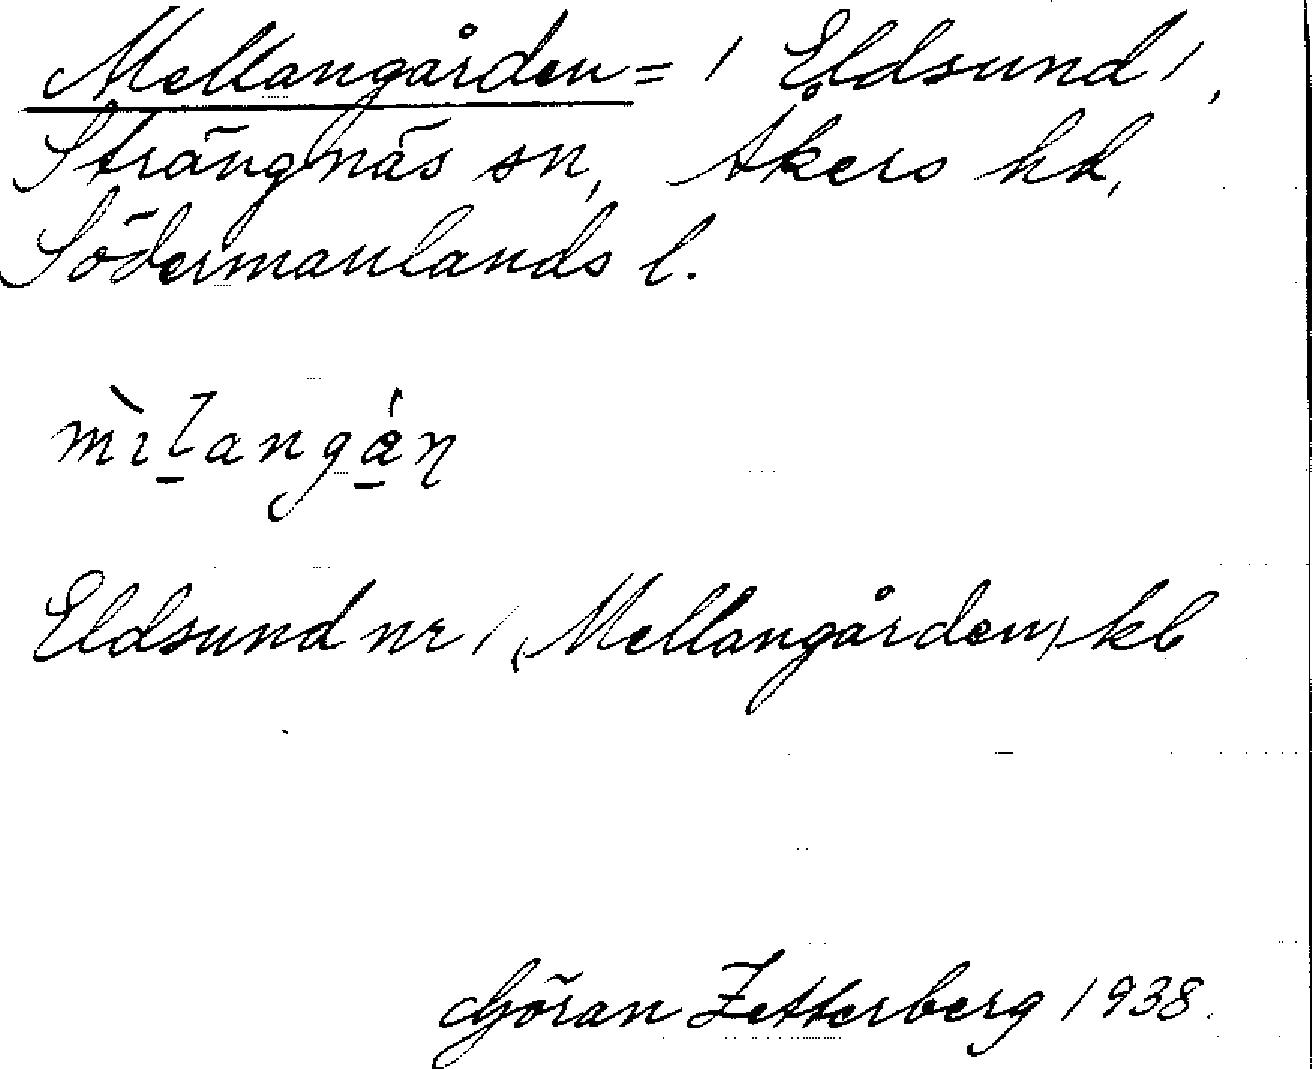 Mellangården = 1 Eldsund 1,
Strängnäs sn, Åkers hd,
Södermanlands l.
mìlangán
Eldsund nr 1 (Mellangården) kb
Göran Zetterberg 1938.